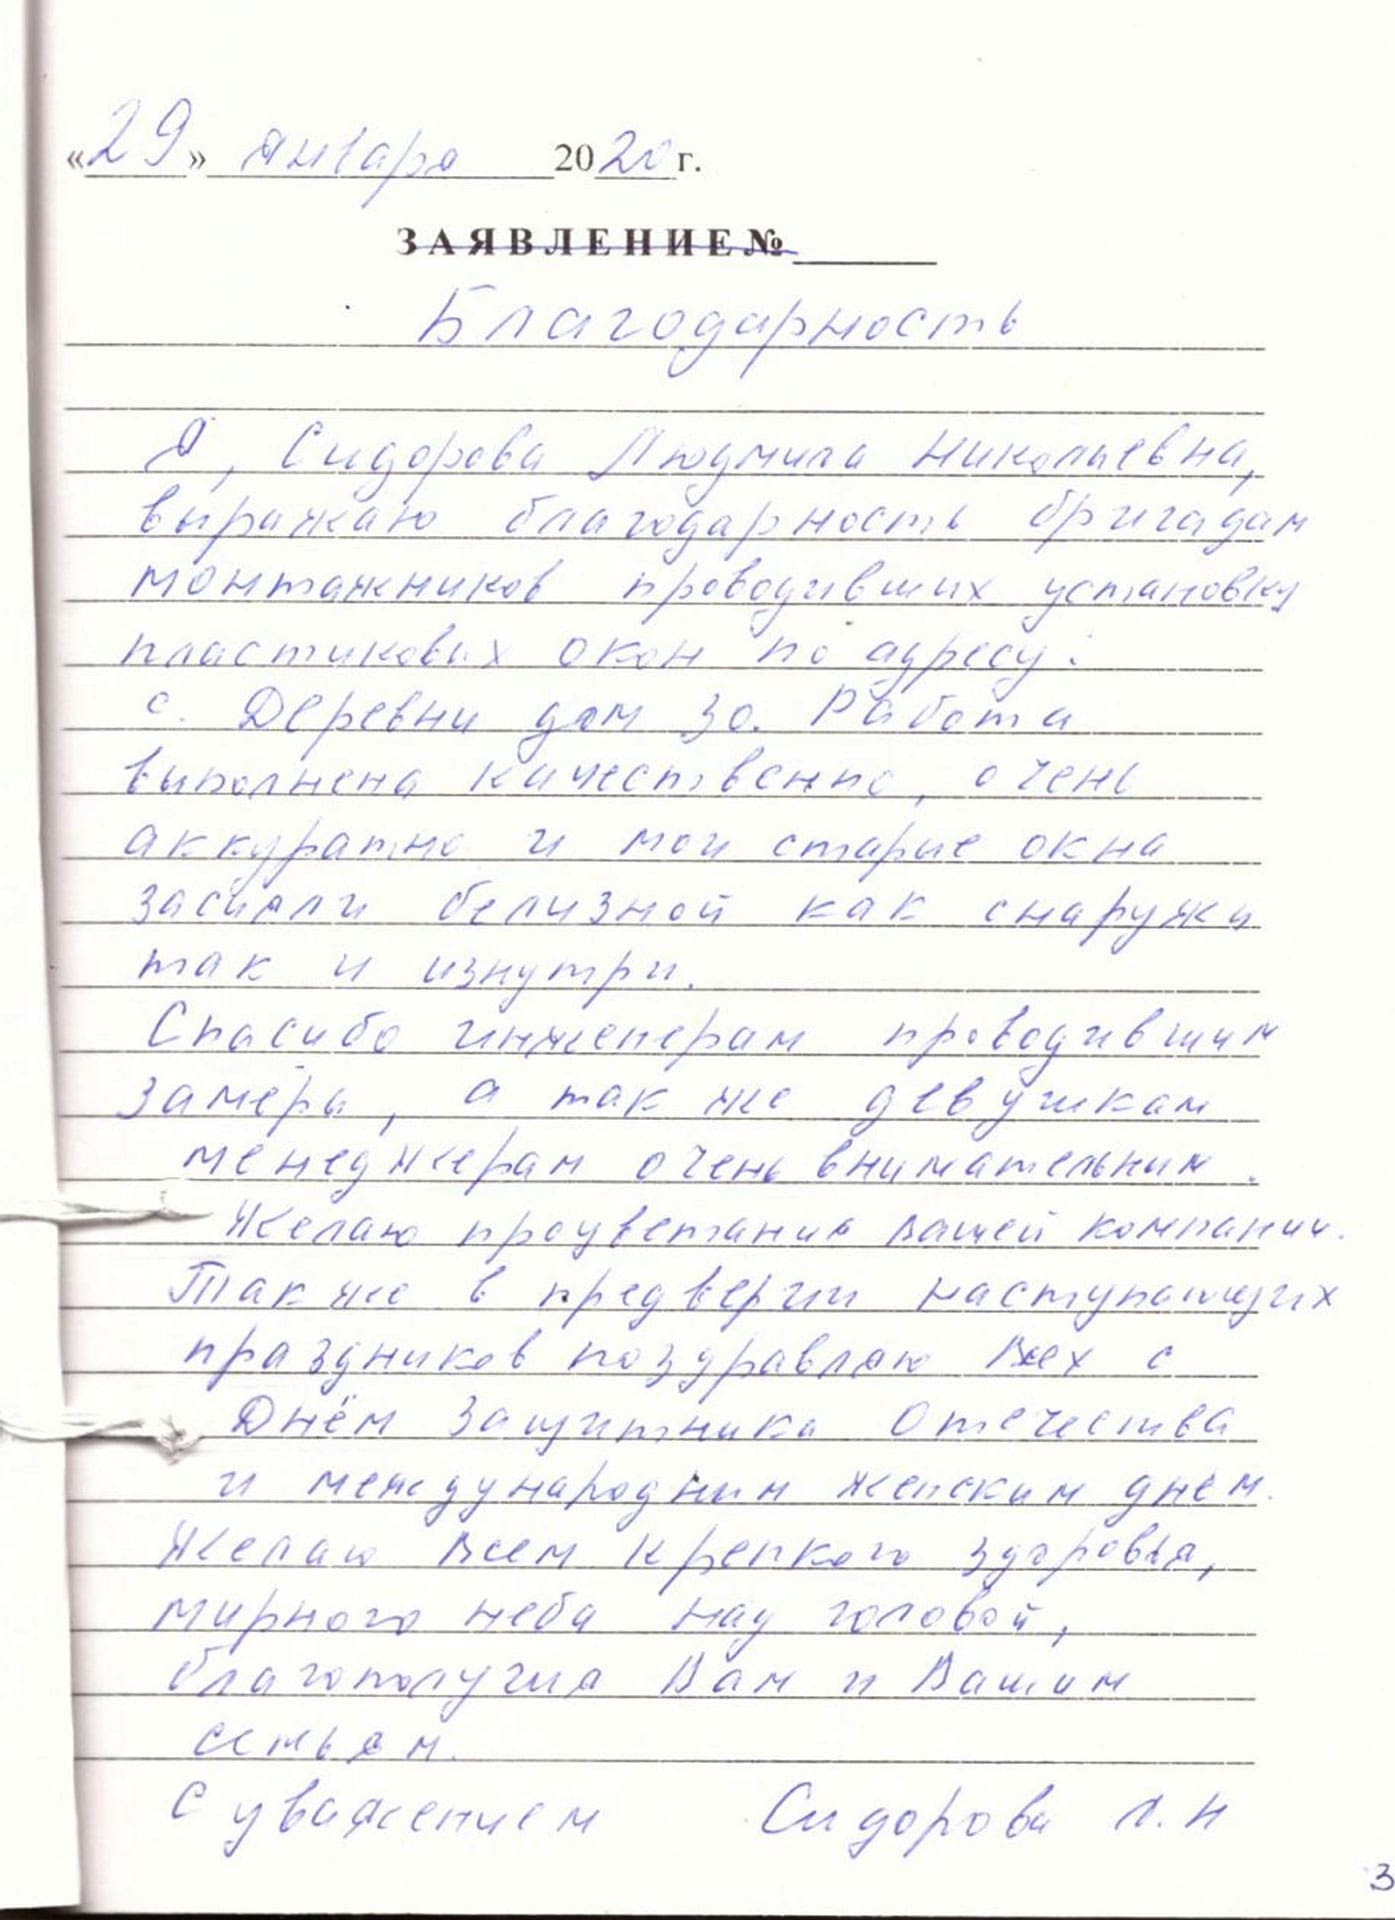 «29» января 2020 г.
ЗАЯВЛЕНИЕ №
Благодарность
Я, Сидорова Людмила Николаевна,
выражаю благодарность бригадам
монтажников проводивших установку
пластиковых окон по адресу:
с. Деревни дом 30. Работа
выполнена качественно, очень
аккуратно и мои старые окна
засияли белизной как снаружи
так и изнутри.
Спасибо инженерам проводившим
замеры, а так же девушкам
менеджерам очень внимательным.
Желаю процветания вашей компании.
Также в предверии наступающих
праздников поздравляю Всех с
Днём Защитника Отечества
и международным женским днём.
Желаю Всем крепкого здоровья,
мирного неба над головой,
благополучия Вам и Вашим
семьям.
С уважением Сидорова Л.Н
3